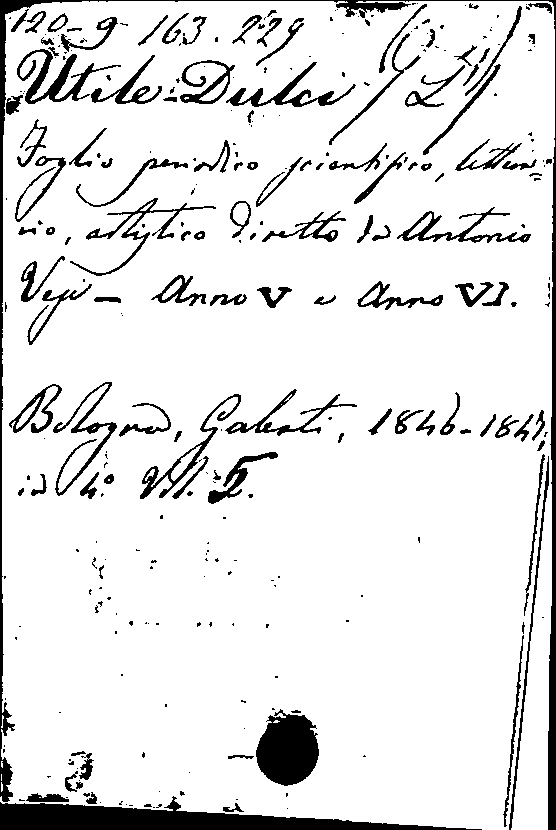 120-9 163.229
Utile-Dulci (L')
Foglio periodico scientifico, lettera=
rio, artistico diretto da Antonio
Vesi - Anno V e Anno VI.
Bologna, Gaberti, 1846-1847,
in 4° Vol. 2.